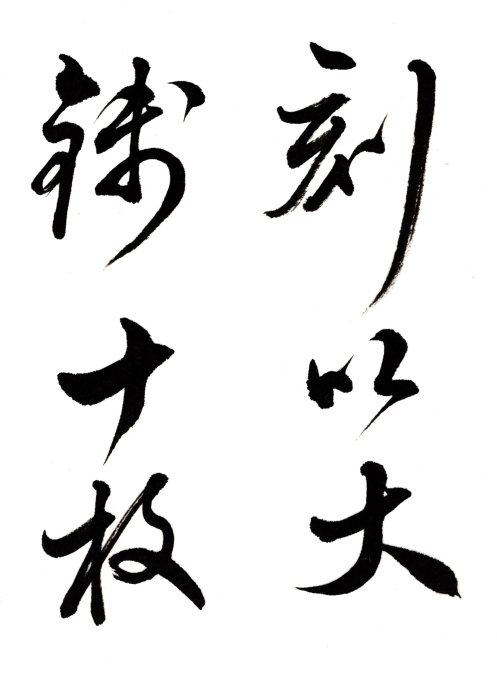 刻以大
錢十枚